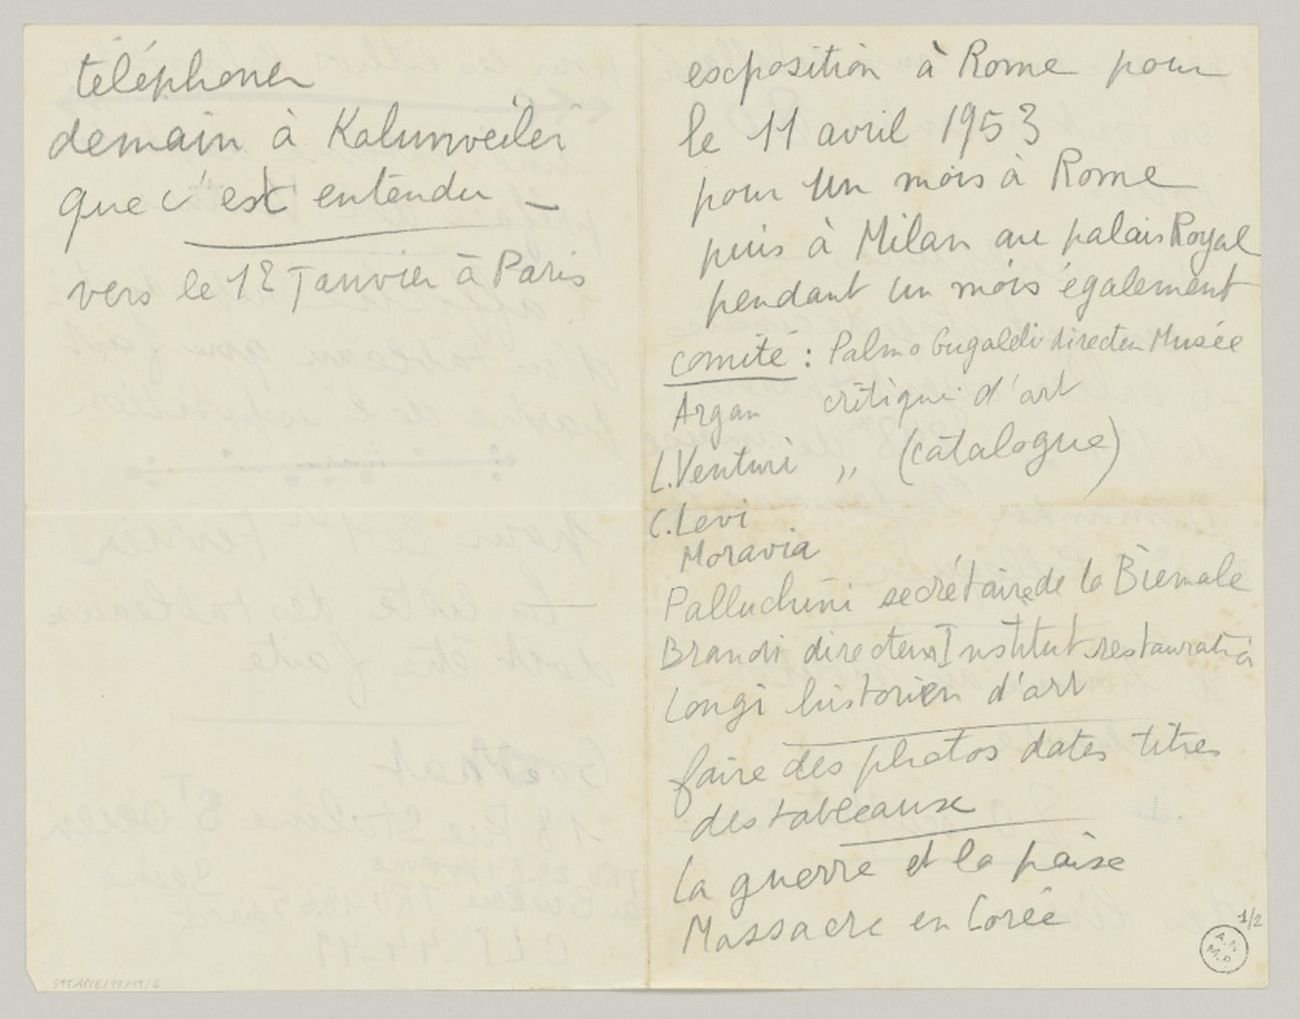 téléphoner
demain à Kalunweiler
que c'est entendu —
vers le 12 Janvier à Paris
exposition à Rome pour
le 11 avril 1953
pour un mois à Rome
puis à Milan au palais Royal
pendant un mois également
comité : Palmo Gugaldi directeu Musée
Argan critique d'art
L. Venturi ,, (catalogue)
C. Levi
Moravia
Palluchini secrétaire de la Biennale
Brandi directeur Institut restauratio
Longi historien d'art
faire des photos dates titres
des tableaux
La guerre et la paix
Massacre en Corée
1/2
A.N.
M.P.